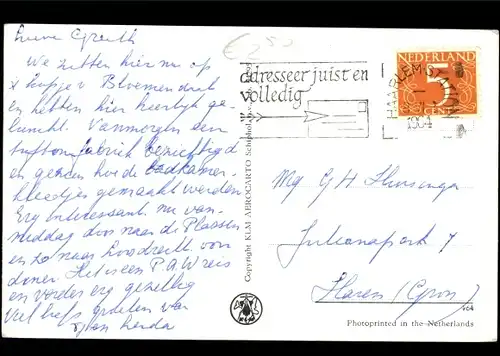 Lieve Greeth
We zitten hier nu op
't kopje v Bloemendaal
en hebben hier heerlijk ge-
luncht. Vanmorgen een
fabriek bezichtigd
en gezien hoe de badkamer-
kleedjes gemaakt werden
Erg interessant. nu van-
middag door naar de Plassen
en zo naar Loosdrecht voor
diner. Het is een P.A.W reis
en verder erg gezellig
veel liefs groeten van
€ 2,50
adresseer juist en
volledig
HAARLEM-STATION
1964
NEDERLAND
5
CENT
Copyright KLM AEROCARTO Schiphol
Mej G H
Julianapark 7
Haren (Gron)
464
Photoprinted in the Netherlands